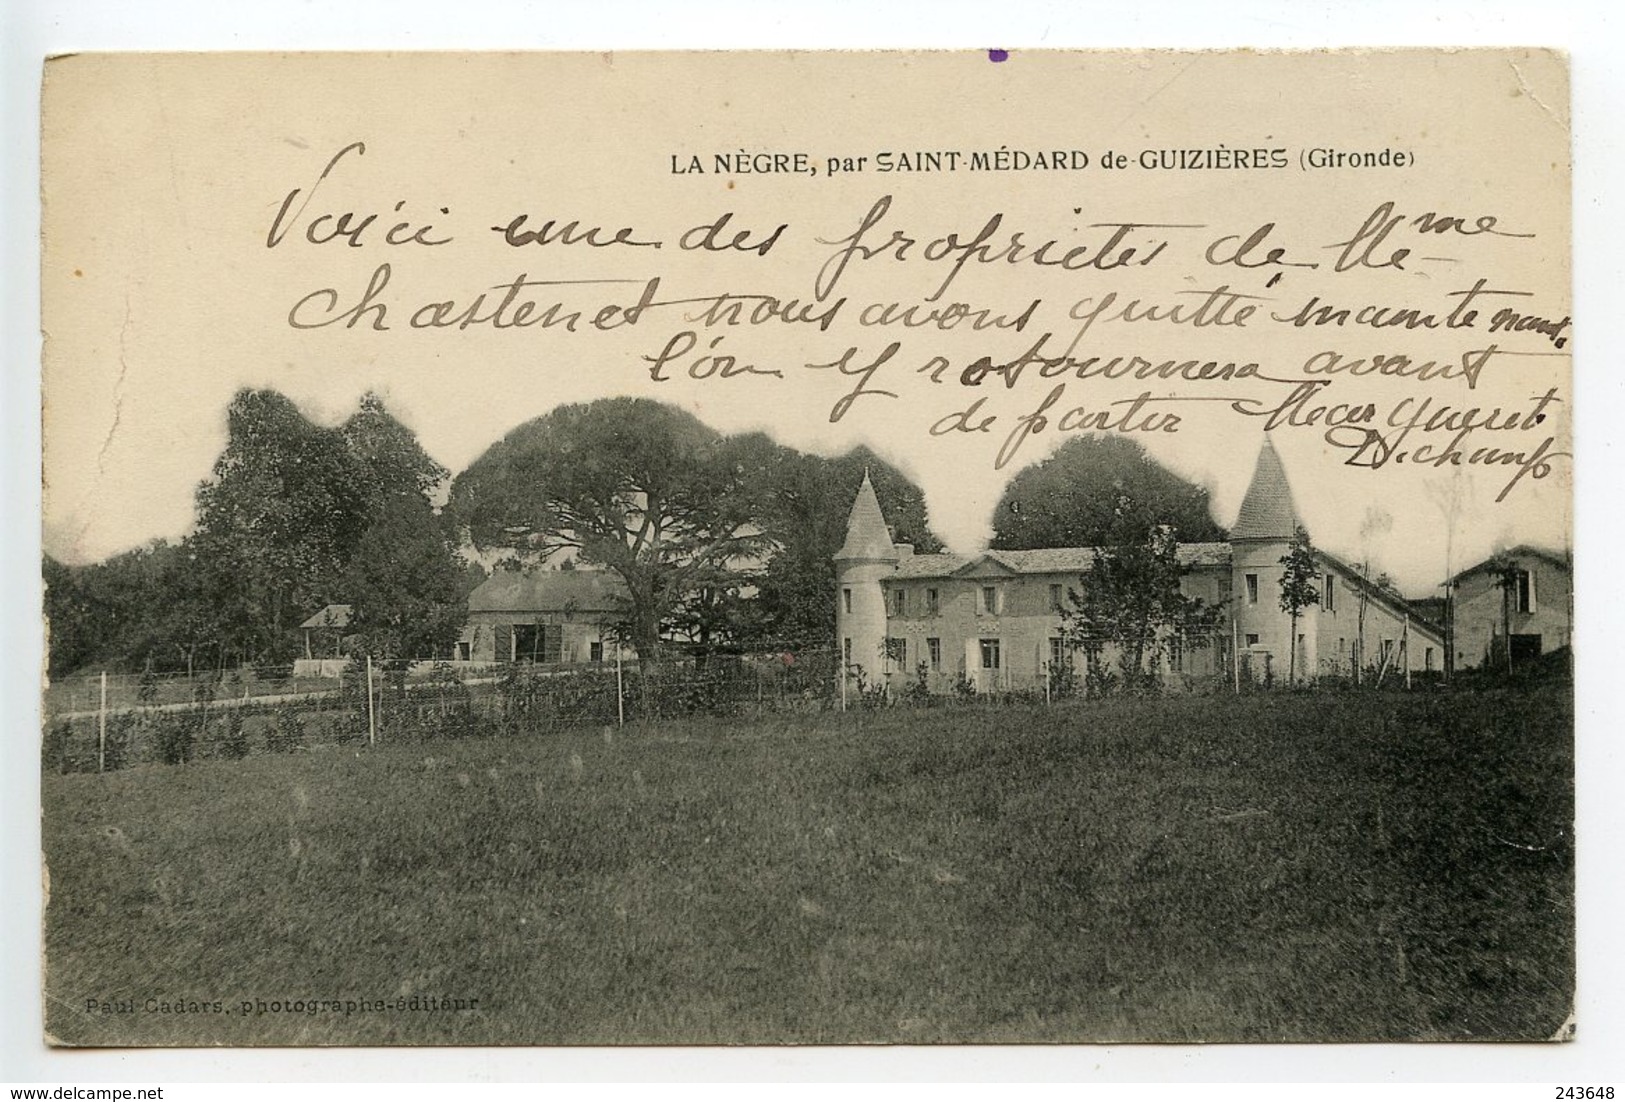 LA NÈGRE, par SAINT-MÉDARD de-GUIZIÈRES (Gironde)
Voici une des proprietés de Mme
Chastenet nous avons quitté maintenant
l'on y retournera avant
de partir Marguerite
Paul Cadars, photographe-éditeur
delcampe.net
243648